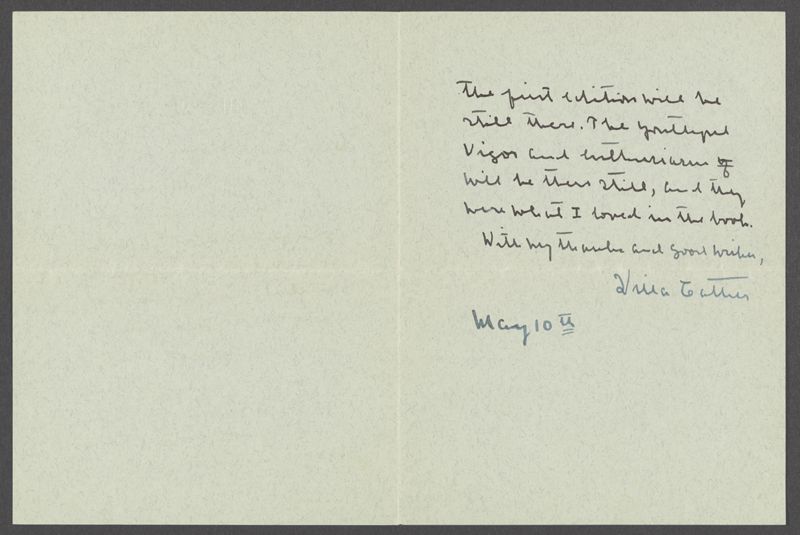 the first edition will be
still there. The youthful
vigor and enthusiasm of
will be there still, and they
were what I loved in the book.
With my thanks and good wishes,
Willa Cather
May 10th